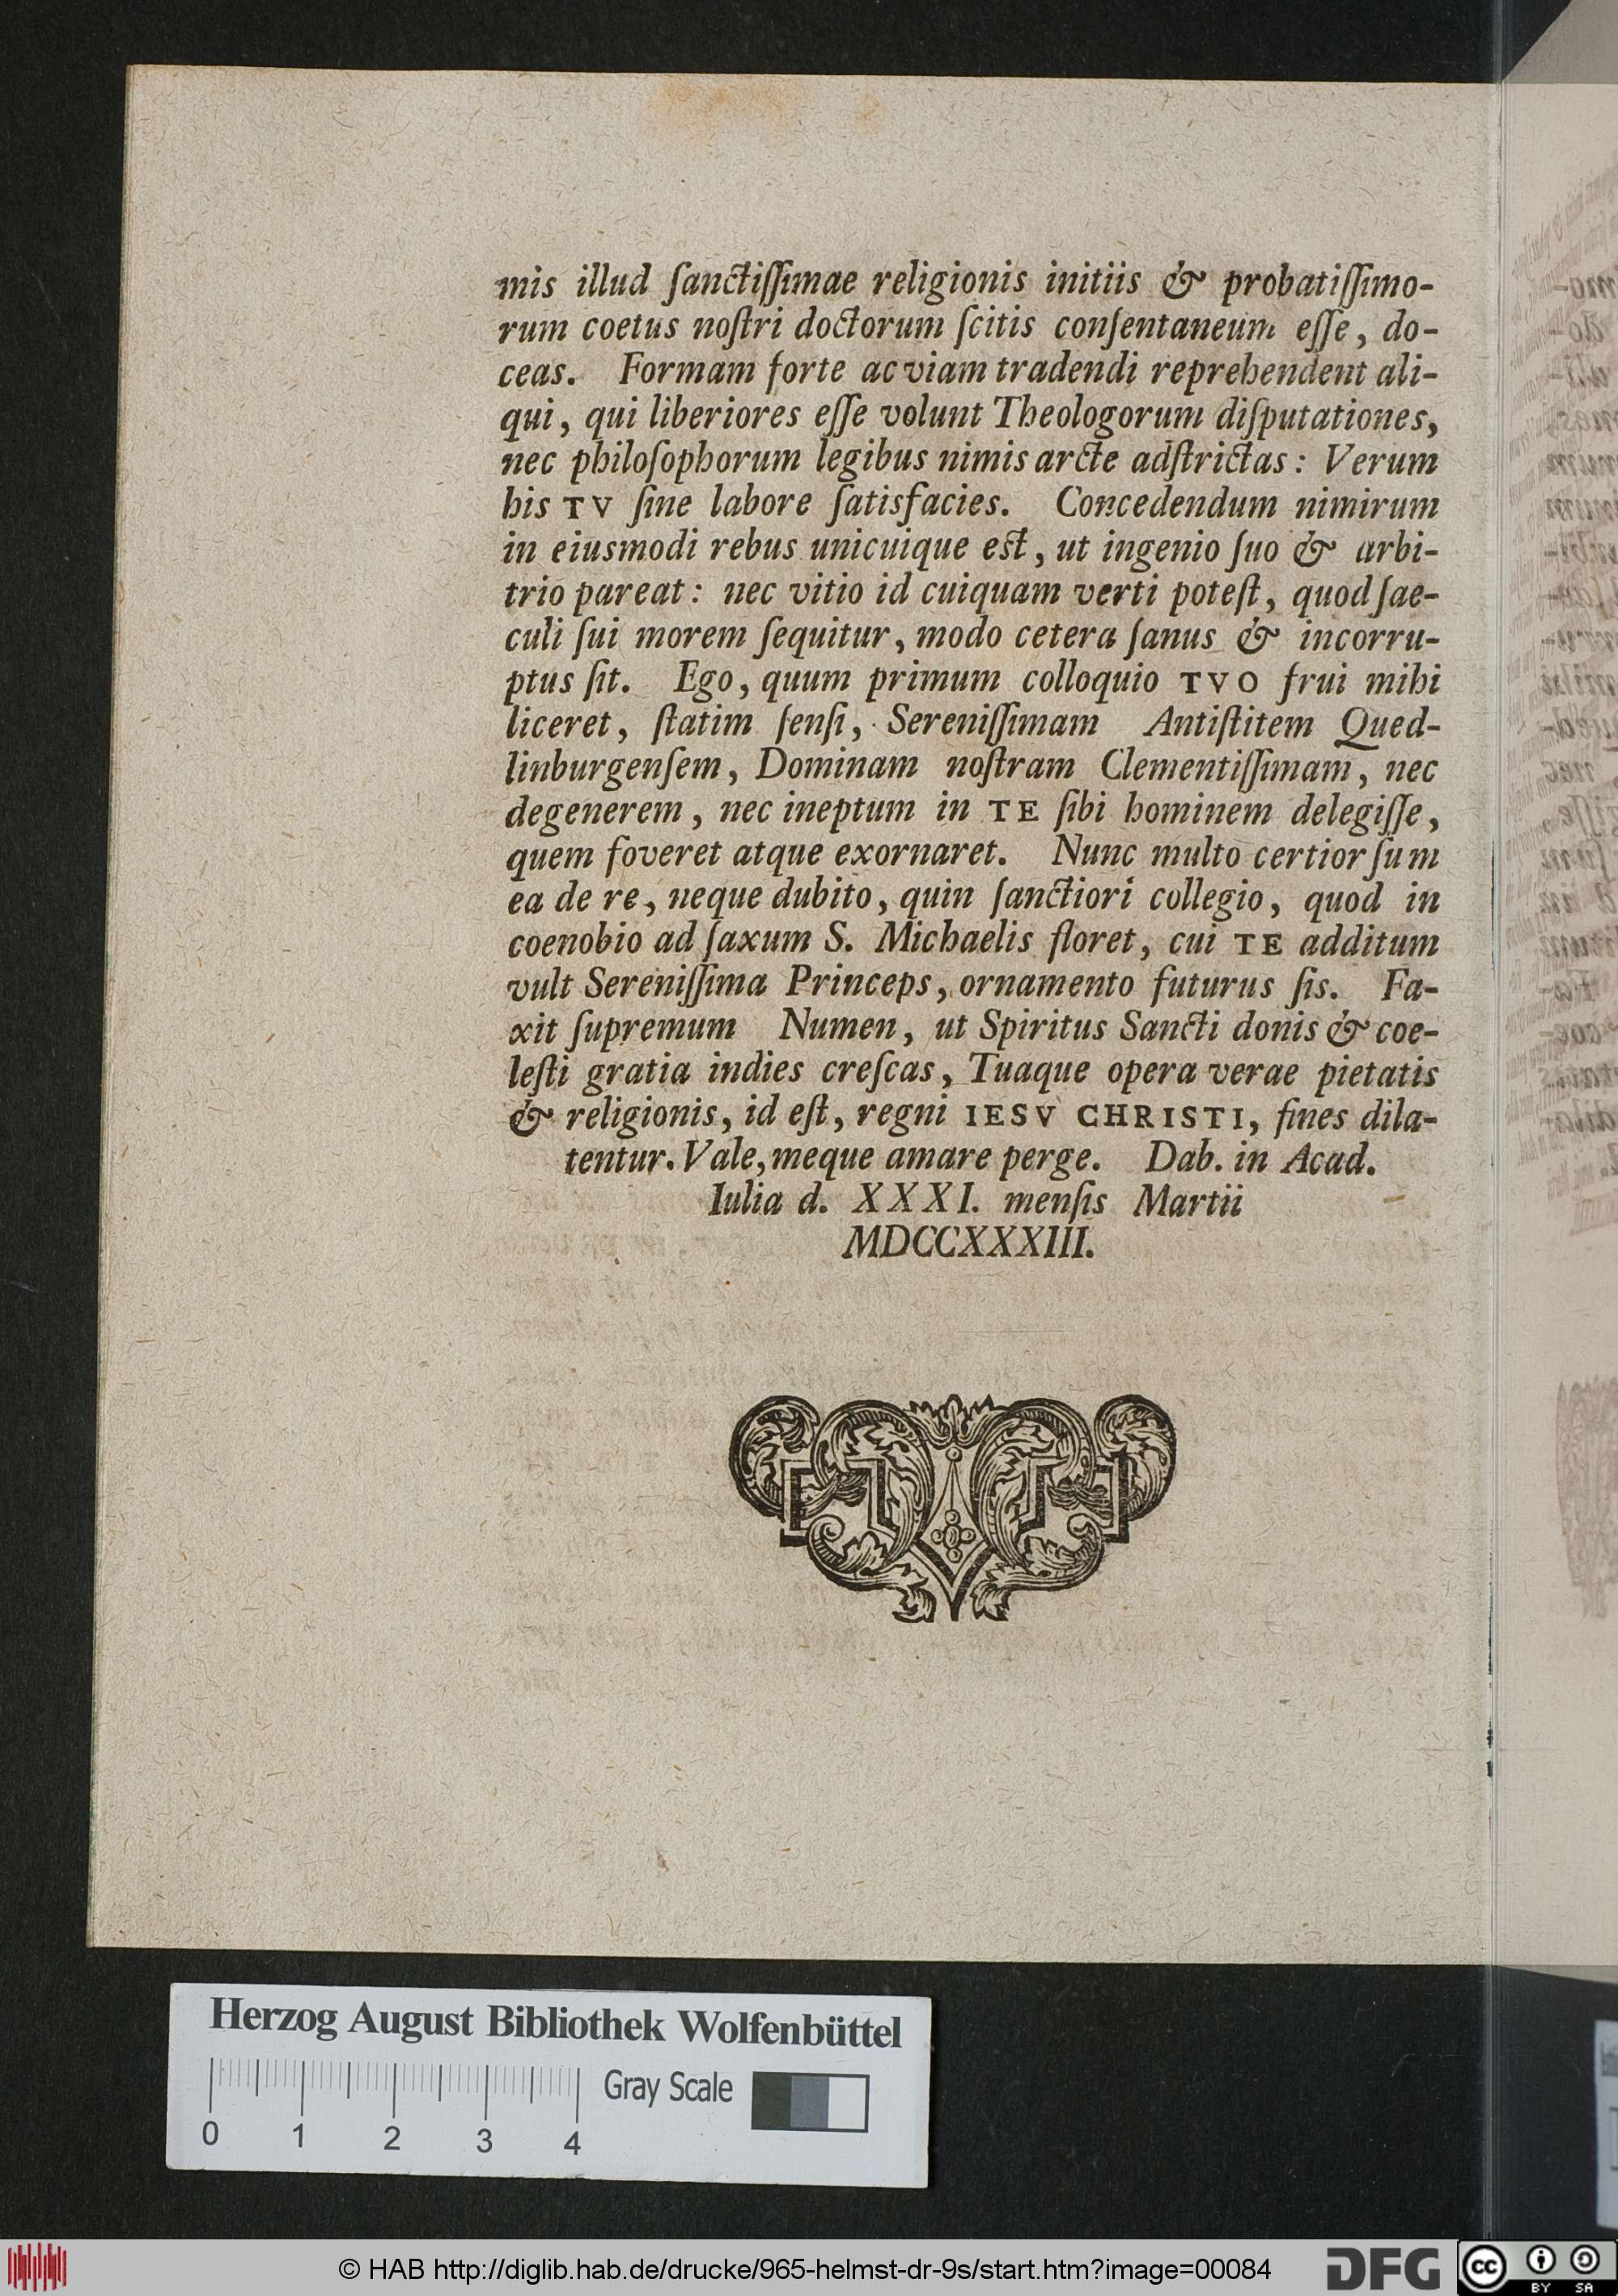 mis illud ſanctiſſimae religionis initiis & probatiſſimo-
rum coetus noſtri doctorum ſcitis conſentaneum eſſe, do-
ceas. Formam forte ac viam tradendi reprehendent ali-
qui, qui liberiores eſſe volunt Theologorum diſputationes,
nec philoſophorum legibus nimis arcte adſtrictas: Verum
his TV ſine labore ſatisfacies. Concedendum nimirum
in eiusmodi rebus unicuique eſt, ut ingenio ſuo & arbi-
trio pareat: nec vitio id cuiquam verti poteſt, quod ſae-
culi ſui morem ſequitur, modo cetera ſanus & incorru-
ptus ſit. Ego, quum primum colloquio TVO frui mihi
liceret, ſtatim ſenſi, Sereniſſimam Antiſtitem Qued-
linburgenſem, Dominam noſtram Clementiſſimam, nec
degenerem, nec ineptum in TE ſibi hominem delegiſſe,
quem foveret atque exornaret. Nunc multo certior ſum
ea de re, neque dubito, quin ſanctiori collegio, quod in
coenobio ad ſaxum S. Michaelis floret, cui TE additum
vult Sereniſſima Princeps, ornamento futurus ſis. Fa-
xit ſupremum Numen, ut Spiritus Sancti donis & coe-
leſti gratia indies creſcas, Tuaque opera verae pietatis
& religionis, id eſt, regni IESV CHRISTI, fines dila-
tentur. Vale, meque amare perge. Dab. in Acad.
Iulia d. XXXI. menſis Martii
MDCCXXXIII.
Herzog August Bibliothek Wolfenbüttel
Gray Scale
0 1 2 3 4
© HAB http://diglib.hab.de/drucke/965-helmst-dr-9s/start.htm?image=00084
DFG
cc BY SA